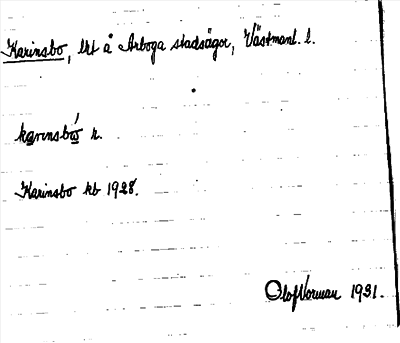 Karinsbo, lht å Arboga stadsägor, Västmanl. l.
karinsbó n.
Karinsbo kb 1928.
Olof Norman 1931.